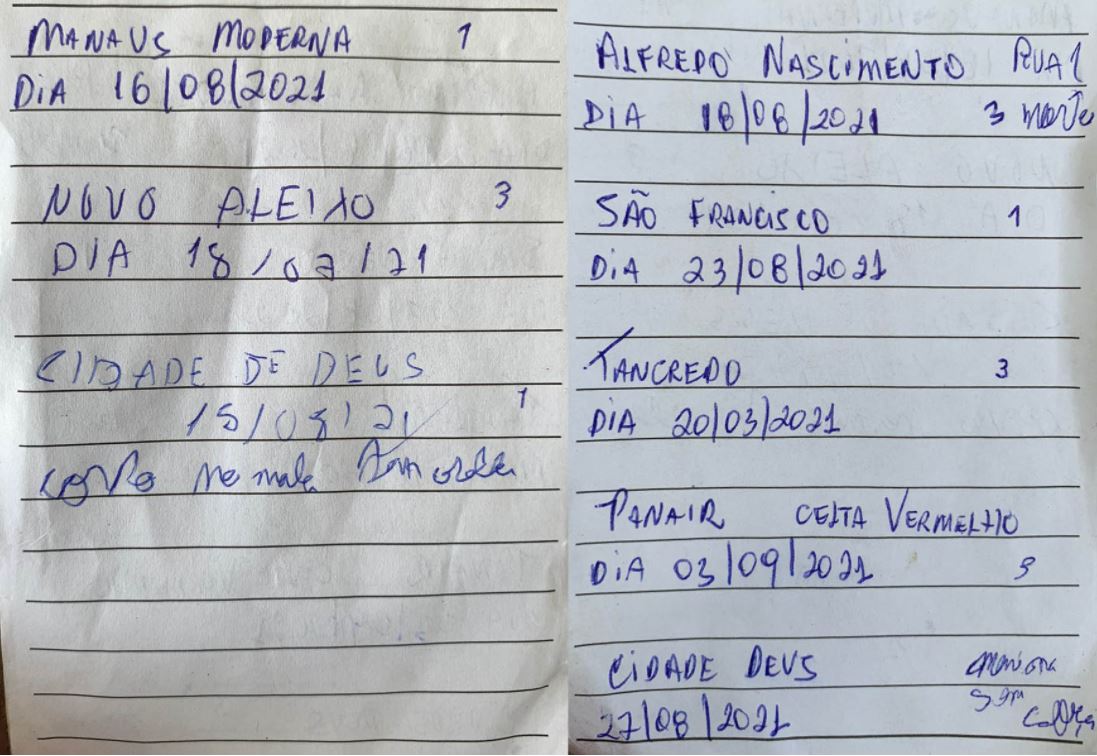 MANAUS MODERNA 1
DiA 16/08/2021
NOVO ALEIXO 3
DIA 18/07/21
CIDADE DE DEUS
15/08/21 1
corpo na mala
ALFREDO NASCIMENTO RUA 1
DiA 18/08/2021 3 morte
SÃO FRANCISCO 1
DiA 23/08/2021
TANCREDO 3
DiA 20/03/2021
PANAIR CEITA VERMELHO
DiA 03/09/2021
CIDADE DEUS
27/08/2021 sem cabeça